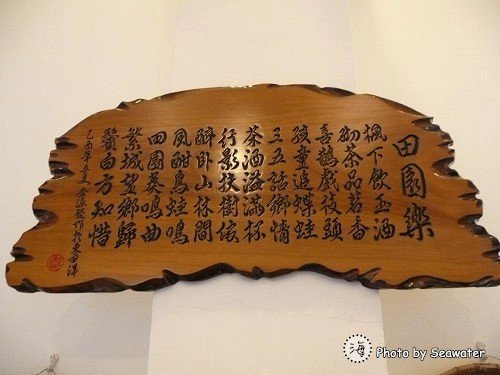 田園樂
楓下飲玉酒
初茶品茗香
喜鵲戲枝頭
孩童追蝶蛙
三五話鄉情
茶酒溢滿杯
行影扶樹依
醉卧山林間
風酣鳥蛙鳴
田園奏鳴曲
繁城望鄉歸
鬢白方知惜
海
Photo by Seawater